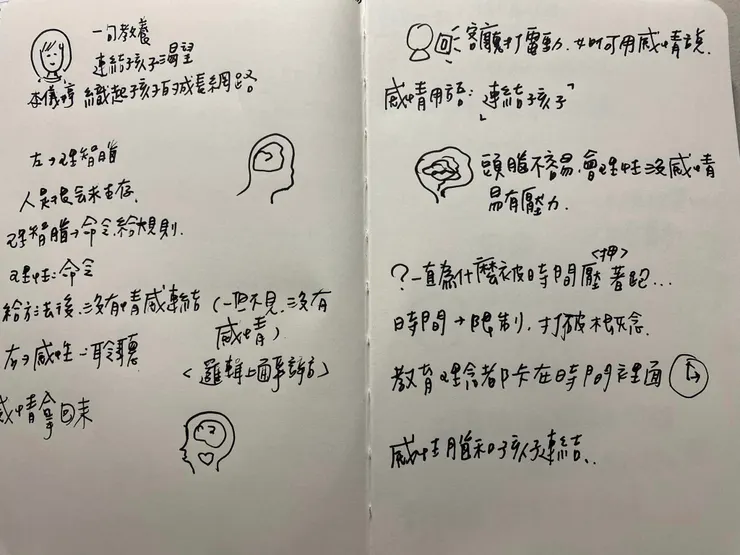 一句教養
連結孩子渴望
李儀婷 織起孩子的成長網路
左→理智腦
人是社會求生存.
理智腦→命令.給規則.
理性:命令
給方法後.沒有情感連結 (一但不見.沒有感情)
右→感性→聆聽
<邏輯上面對話>
感情拿回來
客廳打電動.如何用感情說.
感情用語:「連結孩子」
頭腦不容易.會理性沒感情
易有壓力.
?一直為什麼被時間壓<押>著跑...
時間→限制,打破概念.
教育理念都卡在時間的裡面
感性腦和孩子連結..